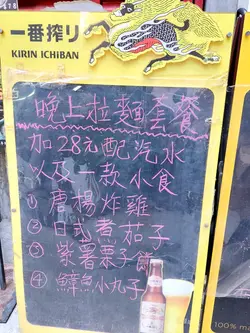 一番搾り
KIRIN ICHIBAN
晚上拉麵套餐
加28元配汽水
以及一款小食
① 唐楊炸雞
② 日式煮茄子
③ 紫薯栗子餅
④ 鱆魚小丸子